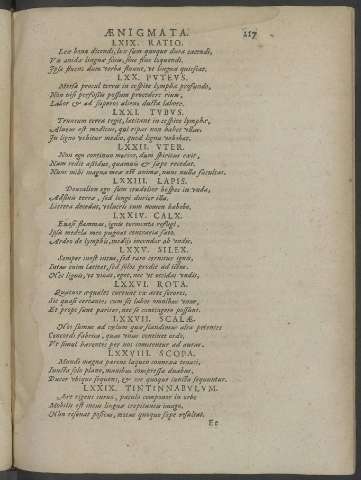 ÆNIGMATA. 217
LXIX. RATIO.
Lex bona dicendi, lex sum quoque dura tacendi,
Vis avidæ linguæ finis, sine fine loquendi.
Ipsa fluens dum verba fluunt, ut lingua quiescat.
LXX. PVTEVS.
Mersa procul terris in cespite lympha profundo,
Non nisi perfossis possum procedere rivis,
Labor & ad superos alieno ducta labore.
LXXI. TVBVS.
Truncum terra tegit, latitant in cespite lymphæ,
Alveus est modicus, qui ripas non habet ullas.
In ligno vehitur medio, quod ligna vehebat.
LXXII. VTER.
Non ego continuo morior, dum spiritus exit,
Nam redit assiduè, quamvis & sæpe recedat.
Nunc mihi magna mea est anima, nunc nulla facultas.
LXXIII. LAPIS.
Deucalion ego sum crudelior hospes in unda,
Adfinis terræ, sed longè durior illa.
Littera decedat, volucris cum nomen habebo.
LXXIV. CALX.
Evasi flammas, ignis tormenta refugi,
Ipsa medela meo pugnat contraria fato.
Ardeo de lymphis, mediis incendor ab undis.
LXXV. SILEX.
Semper inest intus, sed raro cernitur ignis,
Intus enim latitat, sed solos prodit ad ictus.
Nec lignis, ut vivat, eget, nec ut occidat undis.
LXXVI. ROTA.
Quatuor æquales currunt ex arte sorores,
Sic quasi certantes cum sit labor omnibus unus,
Et prope sunt pariter, nec se contingere possunt.
LXXVII. SCALÆ.
Nos sumus ad cœlum quæ scandimus alta petentes
Concordi fabrica, quas unus continet ordo,
Ut simul hærentes per nos comitentur ad auras.
LXXVIII. SCOPA.
Mundi magna parens laqueo connexa tenaci,
Iuncta solo plano, manibus compressa duabus,
Ducor ubique sequens, & me quoque cuncta sequuntur.
LXXIX. TINTINNABVLVM.
Ære rigens curvo, patulo componor in orbe
Mobilis est intus linguæ crepitantis imago.
Non resonat positus, motus quoque sæpe resultat.
Et